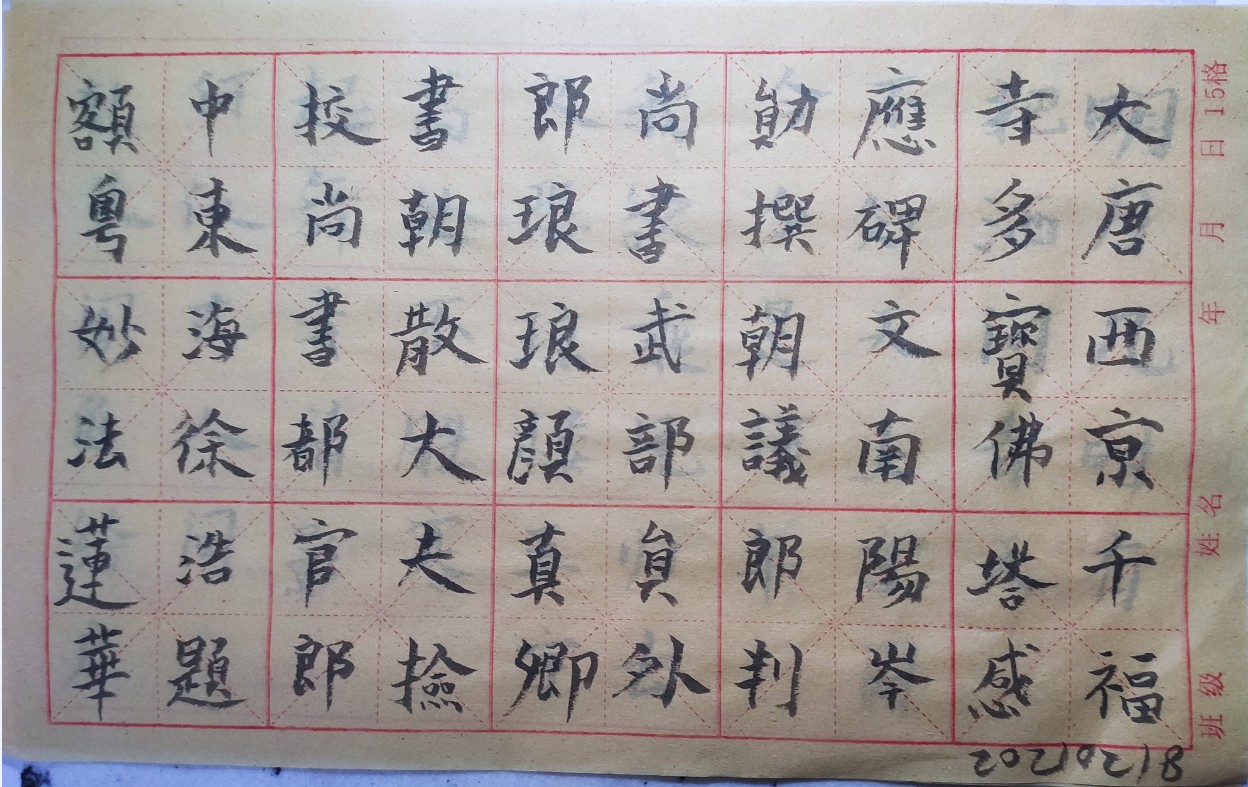 大唐西亰千福
寺多寶佛塔感
應碑文南陽岑
勛撰朝議郎判
尚書武部員外
郎琅琅顏真卿
書朝散大夫撿
挍尚書都官郎
中東海徐浩題
額粤妙法蓮華
班级 姓名 年 月 日 15格
20210218